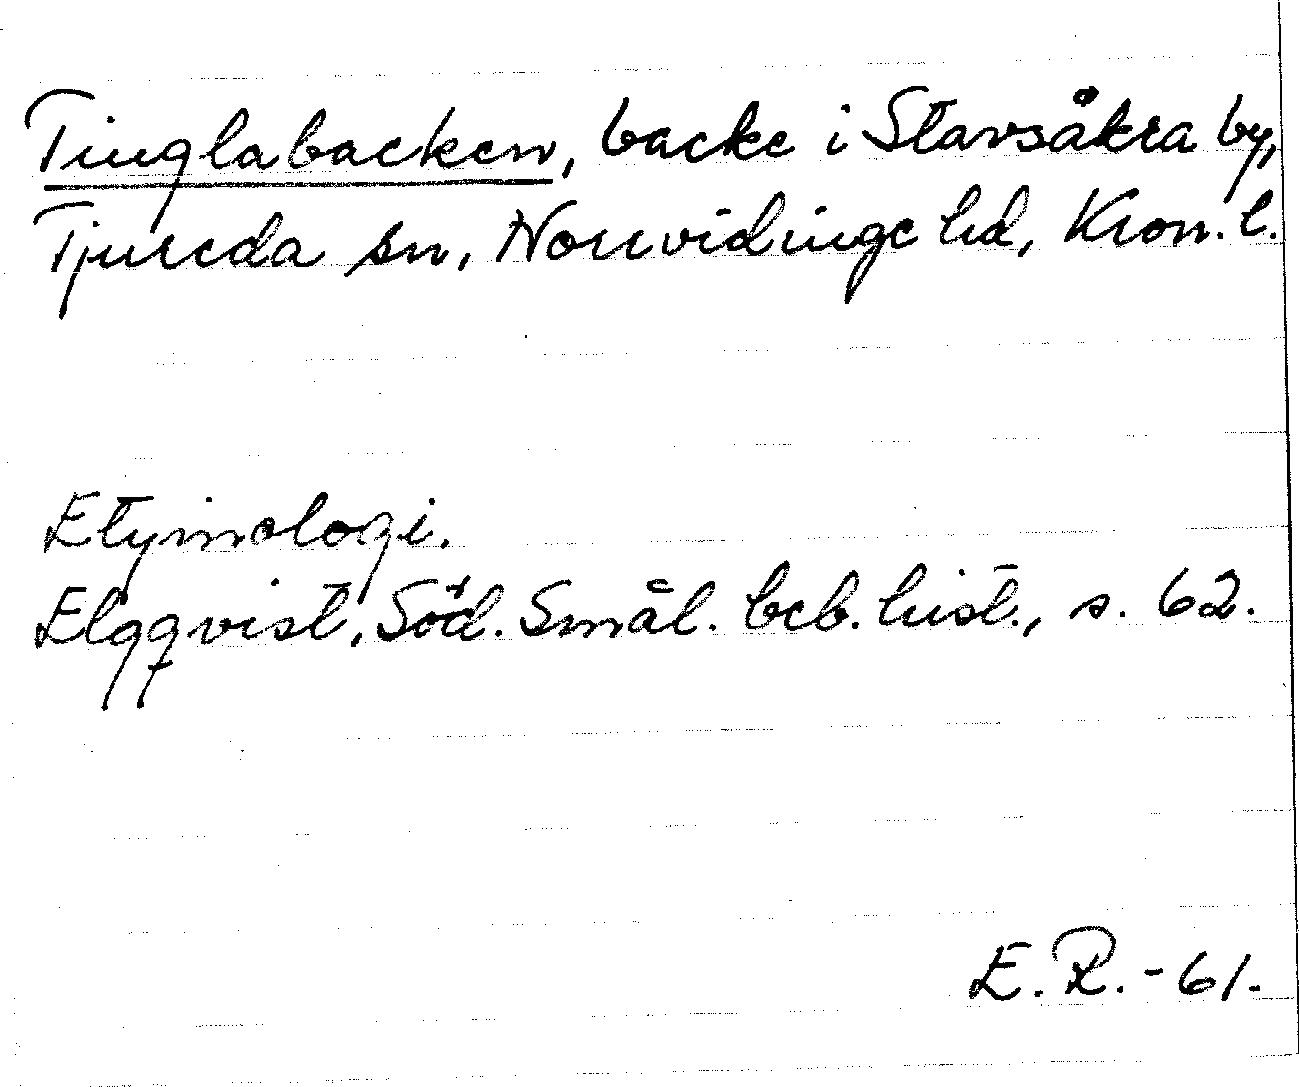 Tinglabacken, backe i Stavsåkra by,
Tjureda sn, Norrvidinge hd, Kron. l.
Etymologi.
Elgqvist, Söd. Smål. beb. hist., s. 62.
E. R. - 61.